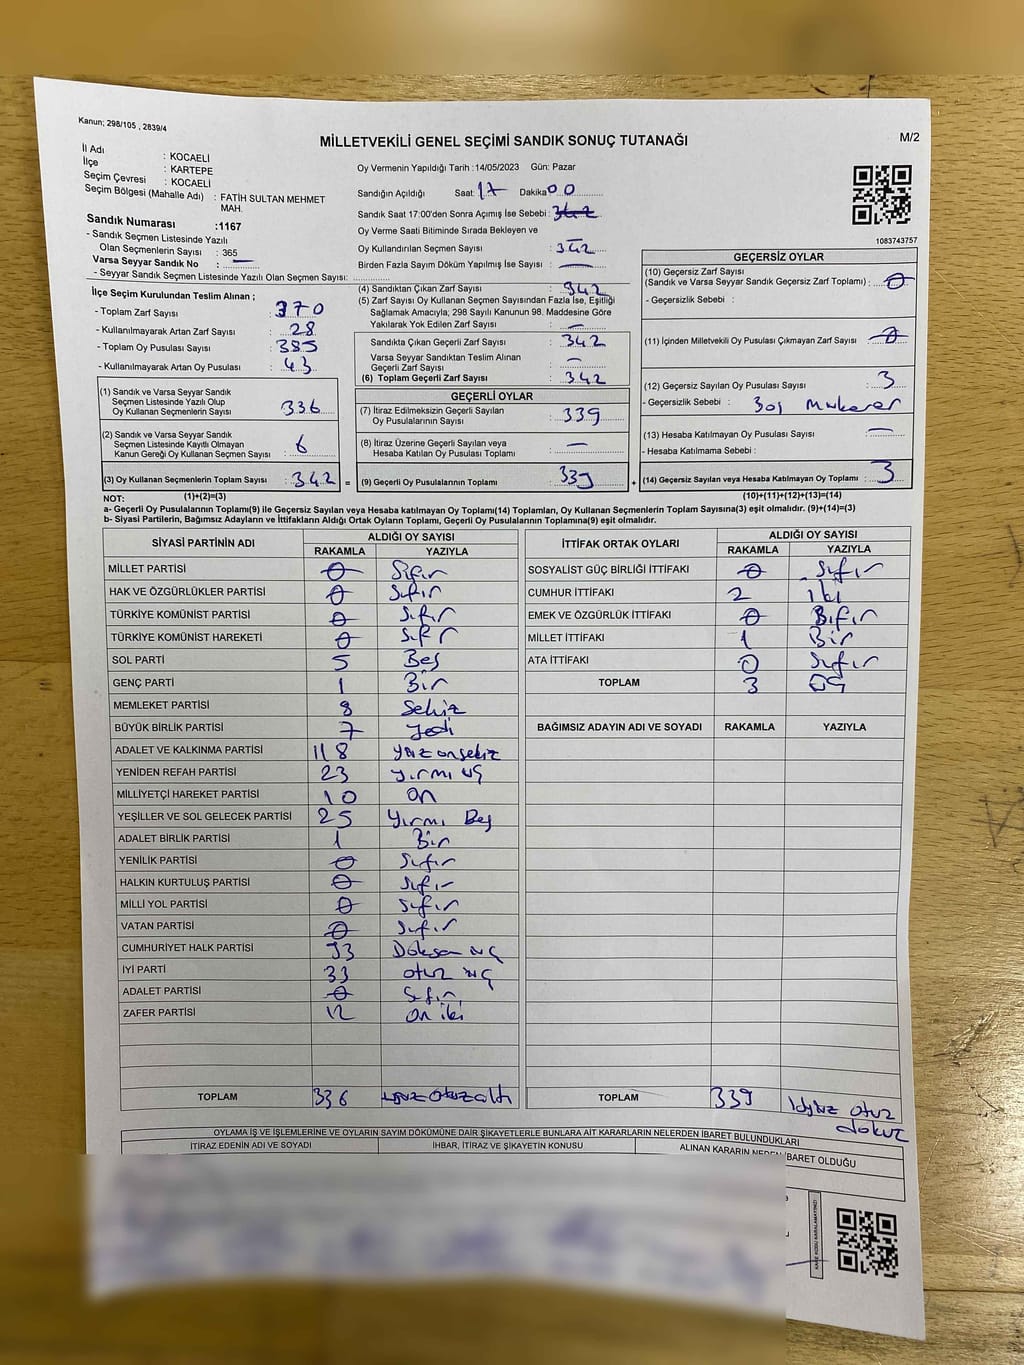 Kanun; 298/105 , 2839/4
MİLLETVEKİLİ GENEL SEÇİMİ SANDIK SONUÇ TUTANAĞI
M/2
İl Adı : KOCAELİ
İlçe : KARTEPE
Seçim Çevresi : KOCAELİ
Seçim Bölgesi (Mahalle Adı) : FATİH SULTAN MEHMET MAH.
Sandık Numarası :1167
- Sandık Seçmen Listesinde Yazılı
Olan Seçmenlerin Sayısı : 365
Varsa Seyyar Sandık No : —
- Seyyar Sandık Seçmen Listesinde Yazılı Olan Seçmen Sayısı:
Oy Vermenin Yapıldığı Tarih : 14/05/2023 Gün: Pazar
Sandığın Açıldığı Saat: 17 Dakika 00
Sandık Saat 17:00'den Sonra Açımış İse Sebebi : 342
Oy Verme Saati Bitiminde Sırada Bekleyen ve
Oy Kullandırılan Seçmen Sayısı : 342
Birden Fazla Sayım Döküm Yapılmış İse Sayısı : —
1083743757
İlçe Seçim Kurulundan Teslim Alınan ;
- Toplam Zarf Sayısı : 370
- Kullanılmayarak Artan Zarf Sayısı : 28
- Toplam Oy Pusulası Sayısı : 385
- Kullanılmayarak Artan Oy Pusulası : 43
(1) Sandık ve Varsa Seyyar Sandık
Seçmen Listesinde Yazılı Olup
Oy Kullanan Seçmenlerin Sayısı : 336
(2) Sandık ve Varsa Seyyar Sandık
Seçmen Listesinde Kayıtlı Olmayan
Kanun Gereği Oy Kullanan Seçmen Sayısı : 6
(3) Oy Kullanan Seçmenlerin Toplam Sayısı : 342 =
(4) Sandıktan Çıkan Zarf Sayısı : 342
(5) Zarf Sayısı Oy Kullanan Seçmen Sayısından Fazla İse, Eşitliği
Sağlamak Amacıyla; 298 Sayılı Kanunun 98. Maddesine Göre
Yakılarak Yok Edilen Zarf Sayısı : —
Sandıkta Çıkan Geçerli Zarf Sayısı : 342
Varsa Seyyar Sandıktan Teslim Alınan
Geçerli Zarf Sayısı : —
(6) Toplam Geçerli Zarf Sayısı : 342
GEÇERLİ OYLAR
(7) İtiraz Edilmeksizin Geçerli Sayılan
Oy Pusulalarının Sayısı : 339
(8) İtiraz Üzerine Geçerli Sayılan veya
Hesaba Katılan Oy Pusulası Toplamı : —
(9) Geçerli Oy Pusulalarının Toplamı : 339 +
GEÇERSİZ OYLAR
(10) Geçersiz Zarf Sayısı
(Sandık ve Varsa Seyyar Sandık Geçersiz Zarf Toplamı) : 0
- Geçersizlik Sebebi :
(11) İçinden Milletvekili Oy Pusulası Çıkmayan Zarf Sayısı : 0
(12) Geçersiz Sayılan Oy Pusulası Sayısı : 3
- Geçersizlik Sebebi : Boş Mükerer
(13) Hesaba Katılmayan Oy Pusulası Sayısı : —
- Hesaba Katılmama Sebebi :
(14) Geçersiz Sayılan veya Hesaba Katılmayan Oy Toplamı : 3
NOT: (1)+(2)=(3) (10)+(11)+(12)+(13)=(14)
a- Geçerli Oy Pusulalarının Toplamı(9) ile Geçersiz Sayılan veya Hesaba katılmayan Oy Toplamı(14) Toplamları, Oy Kullanan Seçmenlerin Toplam Sayısına(3) eşit olmalıdır. (9)+(14)=(3)
b- Siyasi Partilerin, Bağımsız Adayların ve İttifakların Aldığı Ortak Oyların Toplamı, Geçerli Oy Pusulalarının Toplamına(9) eşit olmalıdır.
SİYASİ PARTİNİN ADI ALDIĞI OY SAYISI
RAKAMLA YAZIYLA
MİLLET PARTİSİ 0 Sıfır
HAK VE ÖZGÜRLÜKLER PARTİSİ 0 Sıfır
TÜRKİYE KOMÜNİST PARTİSİ 0 Sıfır
TÜRKİYE KOMÜNİST HAREKETİ 0 Sıfır
SOL PARTİ 5 Beş
GENÇ PARTİ 1 Bir
MEMLEKET PARTİSİ 8 Sekiz
BÜYÜK BİRLİK PARTİSİ 7 Yedi
ADALET VE KALKINMA PARTİSİ 118 yüz onsekiz
YENİDEN REFAH PARTİSİ 23 yirmi üç
MİLLİYETÇİ HAREKET PARTİSİ 10 On
YEŞİLLER VE SOL GELECEK PARTİSİ 25 Yirmi Beş
ADALET BİRLİK PARTİSİ 1 Bir
YENİLİK PARTİSİ 0 Sıfır
HALKIN KURTULUŞ PARTİSİ 0 Sıfır
MİLLİ YOL PARTİSİ 0 Sıfır
VATAN PARTİSİ 0 Sıfır
CUMHURİYET HALK PARTİSİ 93 Doksan üç
İYİ PARTİ 33 otuz üç
ADALET PARTİSİ 0 Sıfır
ZAFER PARTİSİ 12 On iki
TOPLAM 336 üçyüz otuz altı
İTTİFAK ORTAK OYLARI ALDIĞI OY SAYISI
RAKAMLA YAZIYLA
SOSYALİST GÜÇ BİRLİĞİ İTTİFAKI 0 Sıfır
CUMHUR İTTİFAKI 2 iki
EMEK VE ÖZGÜRLÜK İTTİFAKI 0 Sıfır
MİLLET İTTİFAKI 1 Bir
ATA İTTİFAKI 0 Sıfır
TOPLAM 3 Üç
BAĞIMSIZ ADAYIN ADI VE SOYADI RAKAMLA YAZIYLA
TOPLAM 339 üçyüz otuz
dokuz
OYLAMA İŞ VE İŞLEMLERİNE VE OYLARIN SAYIM DÖKÜMÜNE DAİR ŞİKAYETLERLE BUNLARA AİT KARARLARIN NELERDEN İBARET BULUNDUKLARI
İTİRAZ EDENİN ADI VE SOYADI İHBAR, İTİRAZ VE ŞİKAYETİN KONUSU ALINAN KARARIN NEDEN İBARET OLDUĞU
KARE KODU KARALAMAYINIZ!